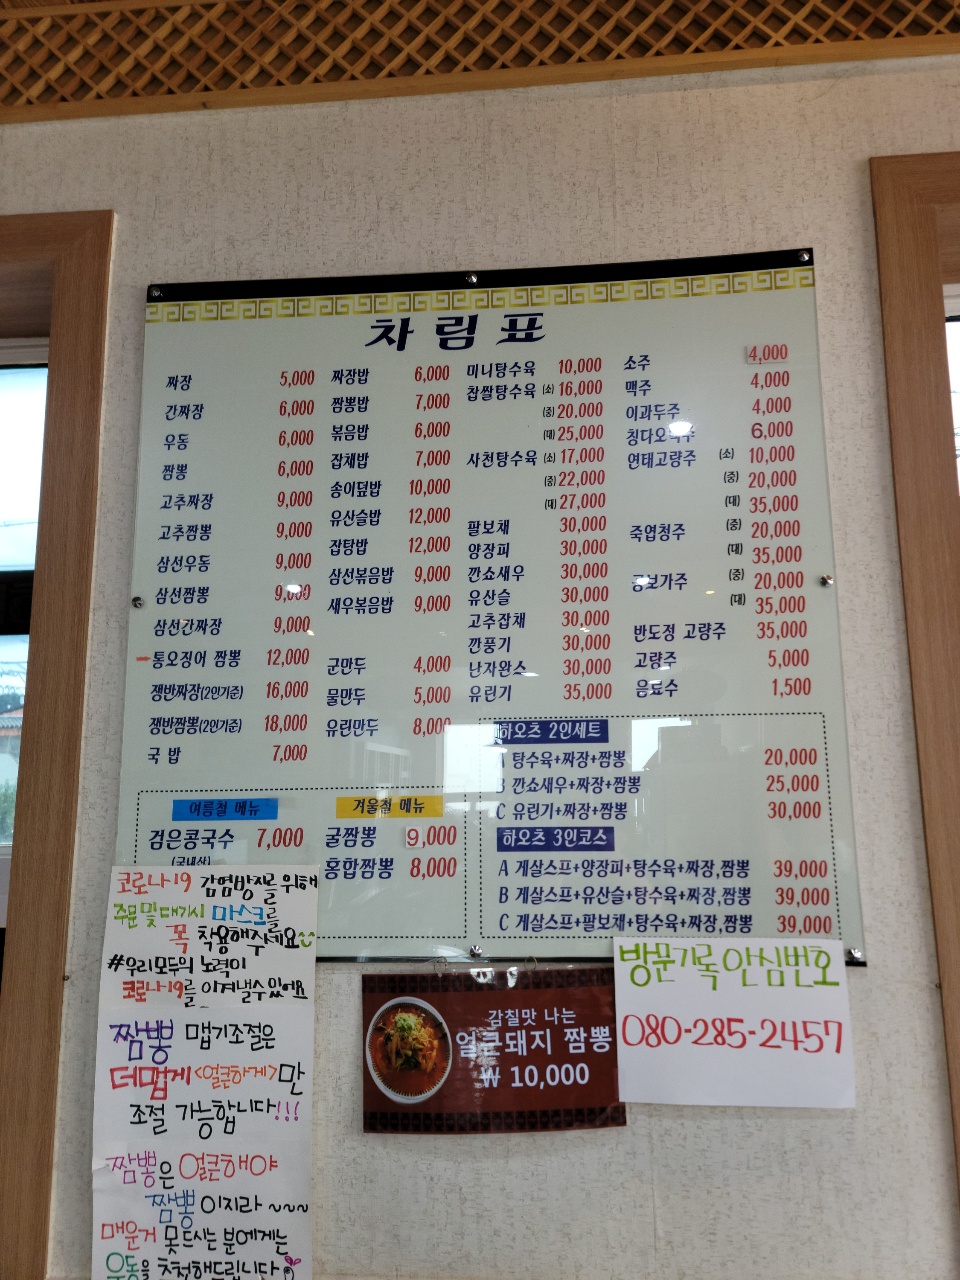 차림표
짜장 5,000
간짜장 6,000
우동 6,000
짬뽕 6,000
고추짜장 9,000
고추짬뽕 9,000
삼선우동 9,000
삼선짬뽕 9,000
삼선간짜장 9,000
통오징어 짬뽕 12,000
쟁반짜장(2인기준) 16,000
쟁반짬뽕(2인기준) 18,000
국 밥 7,000
짜장밥 6,000
짬뽕밥 7,000
볶음밥 6,000
잡채밥 7,000
송이덮밥 10,000
유산슬밥 12,000
잡탕밥 12,000
삼선볶음밥 9,000
새우볶음밥 9,000
군만두 4,000
물만두 5,000
유린만두 8,000
미니탕수육 10,000
찹쌀탕수육 (소) 16,000
(중) 20,000
(대) 25,000
사천탕수육 (소) 17,000
(중) 22,000
(대) 27,000
팔보채 30,000
양장피 30,000
깐쇼새우 30,000
유산슬 30,000
고추잡채 30,000
깐풍기 30,000
난자완스 30,000
유린기 35,000
소주 4,000
맥주 4,000
이과두주 4,000
칭다오맥주 6,000
연태고량주 (소) 10,000
(중) 20,000
(대) 35,000
죽엽청주 (중) 20,000
(대) 35,000
공보가주 (중) 20,000
(대) 35,000
반도정 고량주 35,000
고량주 5,000
음료수 1,500
여름철 메뉴
검은콩국수 7,000
(국내산)
겨울철 메뉴
굴짬뽕 9,000
홍합짬뽕 8,000
하오츠 2인세트
A 탕수육+짜장+짬뽕 20,000
B 깐쇼새우+짜장+짬뽕 25,000
C 유린기+짜장+짬뽕 30,000
하오츠 3인코스
A 게살스프+양장피+탕수육+짜장,짬뽕 39,000
B 게살스프+유산슬+탕수육+짜장,짬뽕 39,000
C 게살스프+팔보채+탕수육+짜장,짬뽕 39,000
코로나19 감염방지를 위해
주문및대기시 마스크를
꼭 착용해주세요
#우리모두의 노력이
코로나19를 이겨낼수있어요
짬뽕 맵기조절은
더맵게<얼큰하게>만
조절 가능합니다!!!
짬뽕은 얼큰해야
짬뽕 이지라~~~
매운거 못드시는분에게는
우동을 추천해드립니다
감칠맛 나는
얼큰돼지 짬뽕
₩ 10,000
방문기록 안심번호
080-285-2457